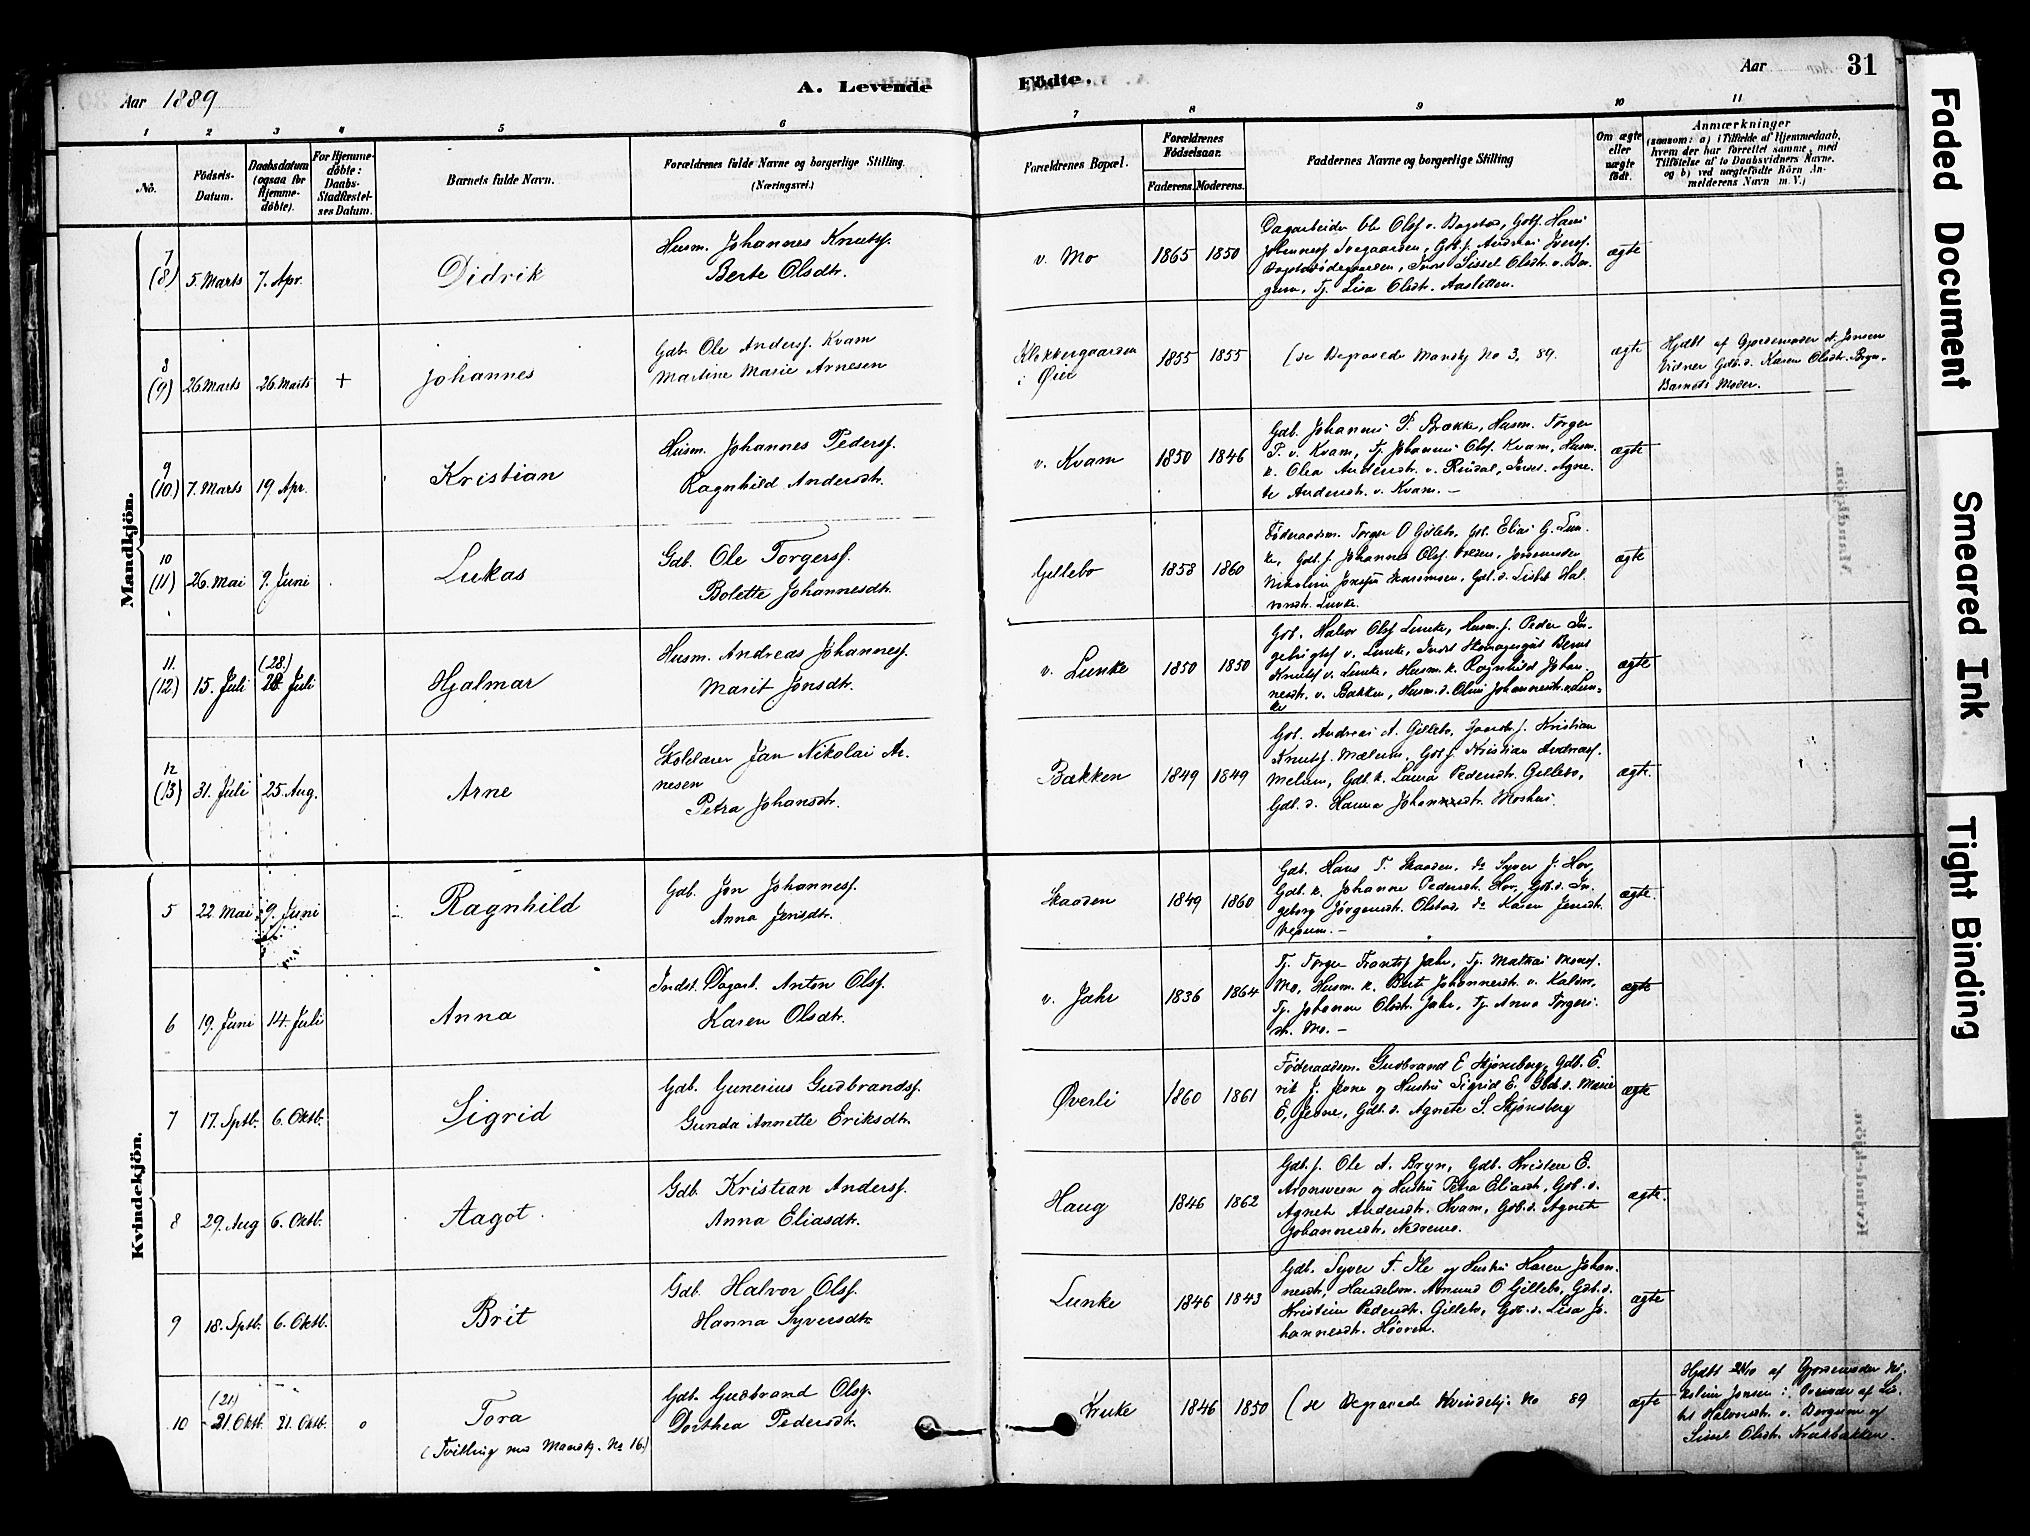 Aar 1889
A. Levende
Födte.
Aar
31
1
2
3
4
5
6
7
8
9
10
11
No.
Födsels-
Datum.
Daabsdatum
(ogsaa for
Hjemme-
döbte).
For Hjemme-
döbte:
Daabs-
Stadfæstel-
ses Datum.
Barnets fulde Navn.
Forældrenes fulde Navne og borgerlige Stilling.
(Næringsvei.)
Forældrenes Bopæl.
Forældrenes
Födselsaar.
Faderens.
Moderens.
Faddernes Navne og borgerlige Stilling
Om ægte
eller
uægte
födt.
Anmærkninger
(saasom: a) i Tilfælde af Hjemmedaab,
hvem der har forrettet samme, med
Tilföielse af to Daabsvidners Navne.
og b) ved uægtefödte Börn An-
melderens Navn m. V.)
Mandkjön.
7
(8) 5. Marts 7. Apr. Didrik
Husm. Johannes Knutsf.
Berte Olsdtr.
v. Mo 1865 1850
Dagarbeider Ole Olsf v. Bogstad, Gbsf. Hans
gum, Tj. Lisa Olsdtr. Aasletten.
ægte
8
(9) 26 Marts 26 Marts + Johannes
Gdb. Ole Andersf. Kvam
Martine Marie Arnesen
Klokkergaarden
i Øier
1855 1855 (se Begravede Mandkj No 3, 89. ægte
Hjdbt af Gjordemoder A. Jensen
Vidner Gdb.d. Karen Olsdtr. Bryn.
Barnets Moder.
9
(10) 7. Marts 19 Apr. Kristian
Husm. Johannes Pedersf.
Ragnhild Andersdtr.
v. Kvam 1850 1846
Gdb. Johannes P. Brække, Husm. Torger
P. v. Kvam, Tj. Johannes Olsf. Kvam, Husm.
k. Olea Andersdtr. v. Rindal, Inds. Agne-
te Andersdtr. v. Kvam. –
ægte
10
(11) 26. Mai 9. Juni Lukas
Gdb. Ole Torgersf.
Bolette Johannesdtr.
Gillebo 1858 1860
Föderaadsm. Torger O Gillebo, Gdb. Elias G. Lun-
ke, Gdb. f. Johannes Olsf.
vorsdtr. Lunke.
ægte
11.
(12) 15. Juli (28.)
28. Juli Hjalmar
Husm. Andreas Johannesf.
Marit Jonsdtr.
v. Lunke 1850 1850
Gdb. Halvor Olsf Lunke, Husm. f. Peder In-
gebrigtsf v. Lunke, Inds.
Knutsf v. Lunke, Husm. k. Ragnhild Johan-
nesdtr. v. Bakken, Husm. d. Oline Johannesdtr. v. Lun-
ke
ægte
12
(13) 31. Juli 25. Aug. Arne
Skolelærer Jan Nikolai Ar-
nesen
Petra Johansdtr.
Bakken 1849 1849
Gdb. Andreas A. Gillebo, Kristian
Knutsf. Mælum, Gdb.f. Kristian Andreasf.
Melum, Gdb. k. Laura Pedersdtr. Gillebo,
Gdb. d. Hanna Johannesdtr. Moshus.
ægte.
Kvindekjön.
5 22 Mai 9. Juni Ragnhild
Gdb. Jon Johannesf.
Anna Jensdtr.
Skaaden 1849 1860
Gdb. Hans T. Skaaden, do Syver J. Hov,
Gdb. k. Johanne Pedersdtr. Hov, Gdb. d. In-
geborg Jörgensdtr. Olstad, do Karen Jensdtr.
ægte.
6 19. Juni 14. Juli Anna
Indst. Dagarb. Anton Olsf.
Karen Olsdtr.
v. Jahr 1836 1864
Tj. Torger Frantsf Jahr, Tj. Mathias Monsf.
Mo, Husm. k. Berte Johannesdtr. v. Kalvne,
Tj. Johanne Olsdtr. Jahr, Tj. Anna Torgers-
dtr. Mo. –
ægte
7 17. Sptb. 6. Oktb. Sigrid
Gdb. Gunerius Gudbrandsf.
Gunda Annette Eriksdtr.
Øverli 1860 1861
Föderaadsm. Gudbrand E Skjønsberg, Gdb. E-
rik J. Jevne og Hustru Sigrid E. Gbd. d. Marie
E, Jevne, Gdb. d. Agnete S. Skjønsberg
ægte
8 29. Aug 6. Oktb. Aagot
Gdb. Kristian Andersf.
Anna Eliasdtr.
Haug 1846 1862
Gdb. f. Ole A. Bryn, Gdb. Kristen E.
Aronsveen og Hustru Petra Eliasdtr, Gdb. d.
Agnete Andersdtr. Kvam, Gdb. d. Agnete
Johannesdtr.
ægte.
9 18. Sptb. 6. Oktb. Brit
Gdb. Halvor Olsf.
Hanna Syversdtr.
Lunke 1846 1843
Gdb. Syver F. Ile og Hustru Karen Johan-
nesdtr, Handelsm. Amund O Gillebo, Gdb. d.
Kristine Pedersdtr. Gillebo, Gdb. d. Lisa Jo-
hannesdtr. Hovren.
ægte
10 (21)
21. Oktb. 21. Oktb. o Tora
(Tvilling med Mandkj. No 16.)
Gdb. Gudbrand Olsf.
Dorthea Pedersdtr.
Kruke 1846 1850 (se Begravede Kvindekj. No 89 ægte
Hjdbt 21/10 af Gjordemoder Ni-
koline Jensen i Overvær af Lis-
bet Halvorsdtr. v. Bergum og
Sissel Olsdtr. Krukbakken.
Faded Document
Smeared Ink
Tight Binding